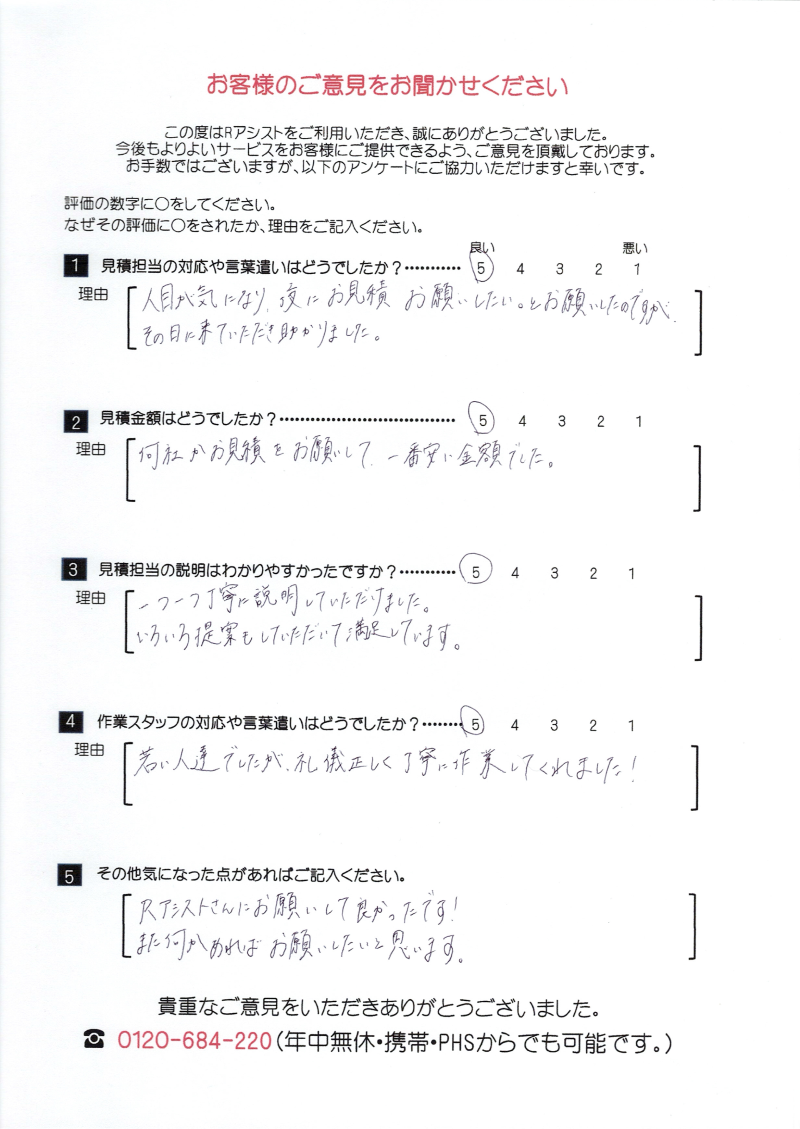 お客様のご意見をお聞かせください
この度はRアシストをご利用いただき、誠にありがとうございました。
今後もよりよいサービスをお客様にご提供できるよう、ご意見を頂戴しております。
お手数ではございますが、以下のアンケートにご協力いただけますと幸いです。
評価の数字に○をしてください。
なぜその評価に○をされたか、理由をご記入ください。
良い 悪い
1 見積担当の対応や言葉遣いはどうでしたか？・・・・・・・・・・・ 5 4 3 2 1
理由 人目が気になり、夜にお見積お願いしたい。とお願いしたのですが、
その日に来ていただき助かりました。
2 見積金額はどうでしたか？・・・・・・・・・・・・・・・・・・・・・・・・・・・・・・・・・ 5 4 3 2 1
理由 何社かお見積をお願いして、一番安い金額でした。
3 見積担当の説明はわかりやすかったですか？・・・・・・・・・・・ 5 4 3 2 1
理由 一つ一つ丁寧に説明していただけました。
いろいろ提案もしていただいて満足しています。
4 作業スタッフの対応や言葉遣いはどうでしたか？・・・・・・・・ 5 4 3 2 1
理由 若い人達でしたが、礼儀正しく丁寧に作業してくれました！
5 その他気になった点があればご記入ください。
Rアシストさんにお願いして良かったです！
また何かあればお願いしたいと思います。
貴重なご意見をいただきありがとうございました。
☎ 0120-684-220(年中無休・携帯・PHSからでも可能です。)